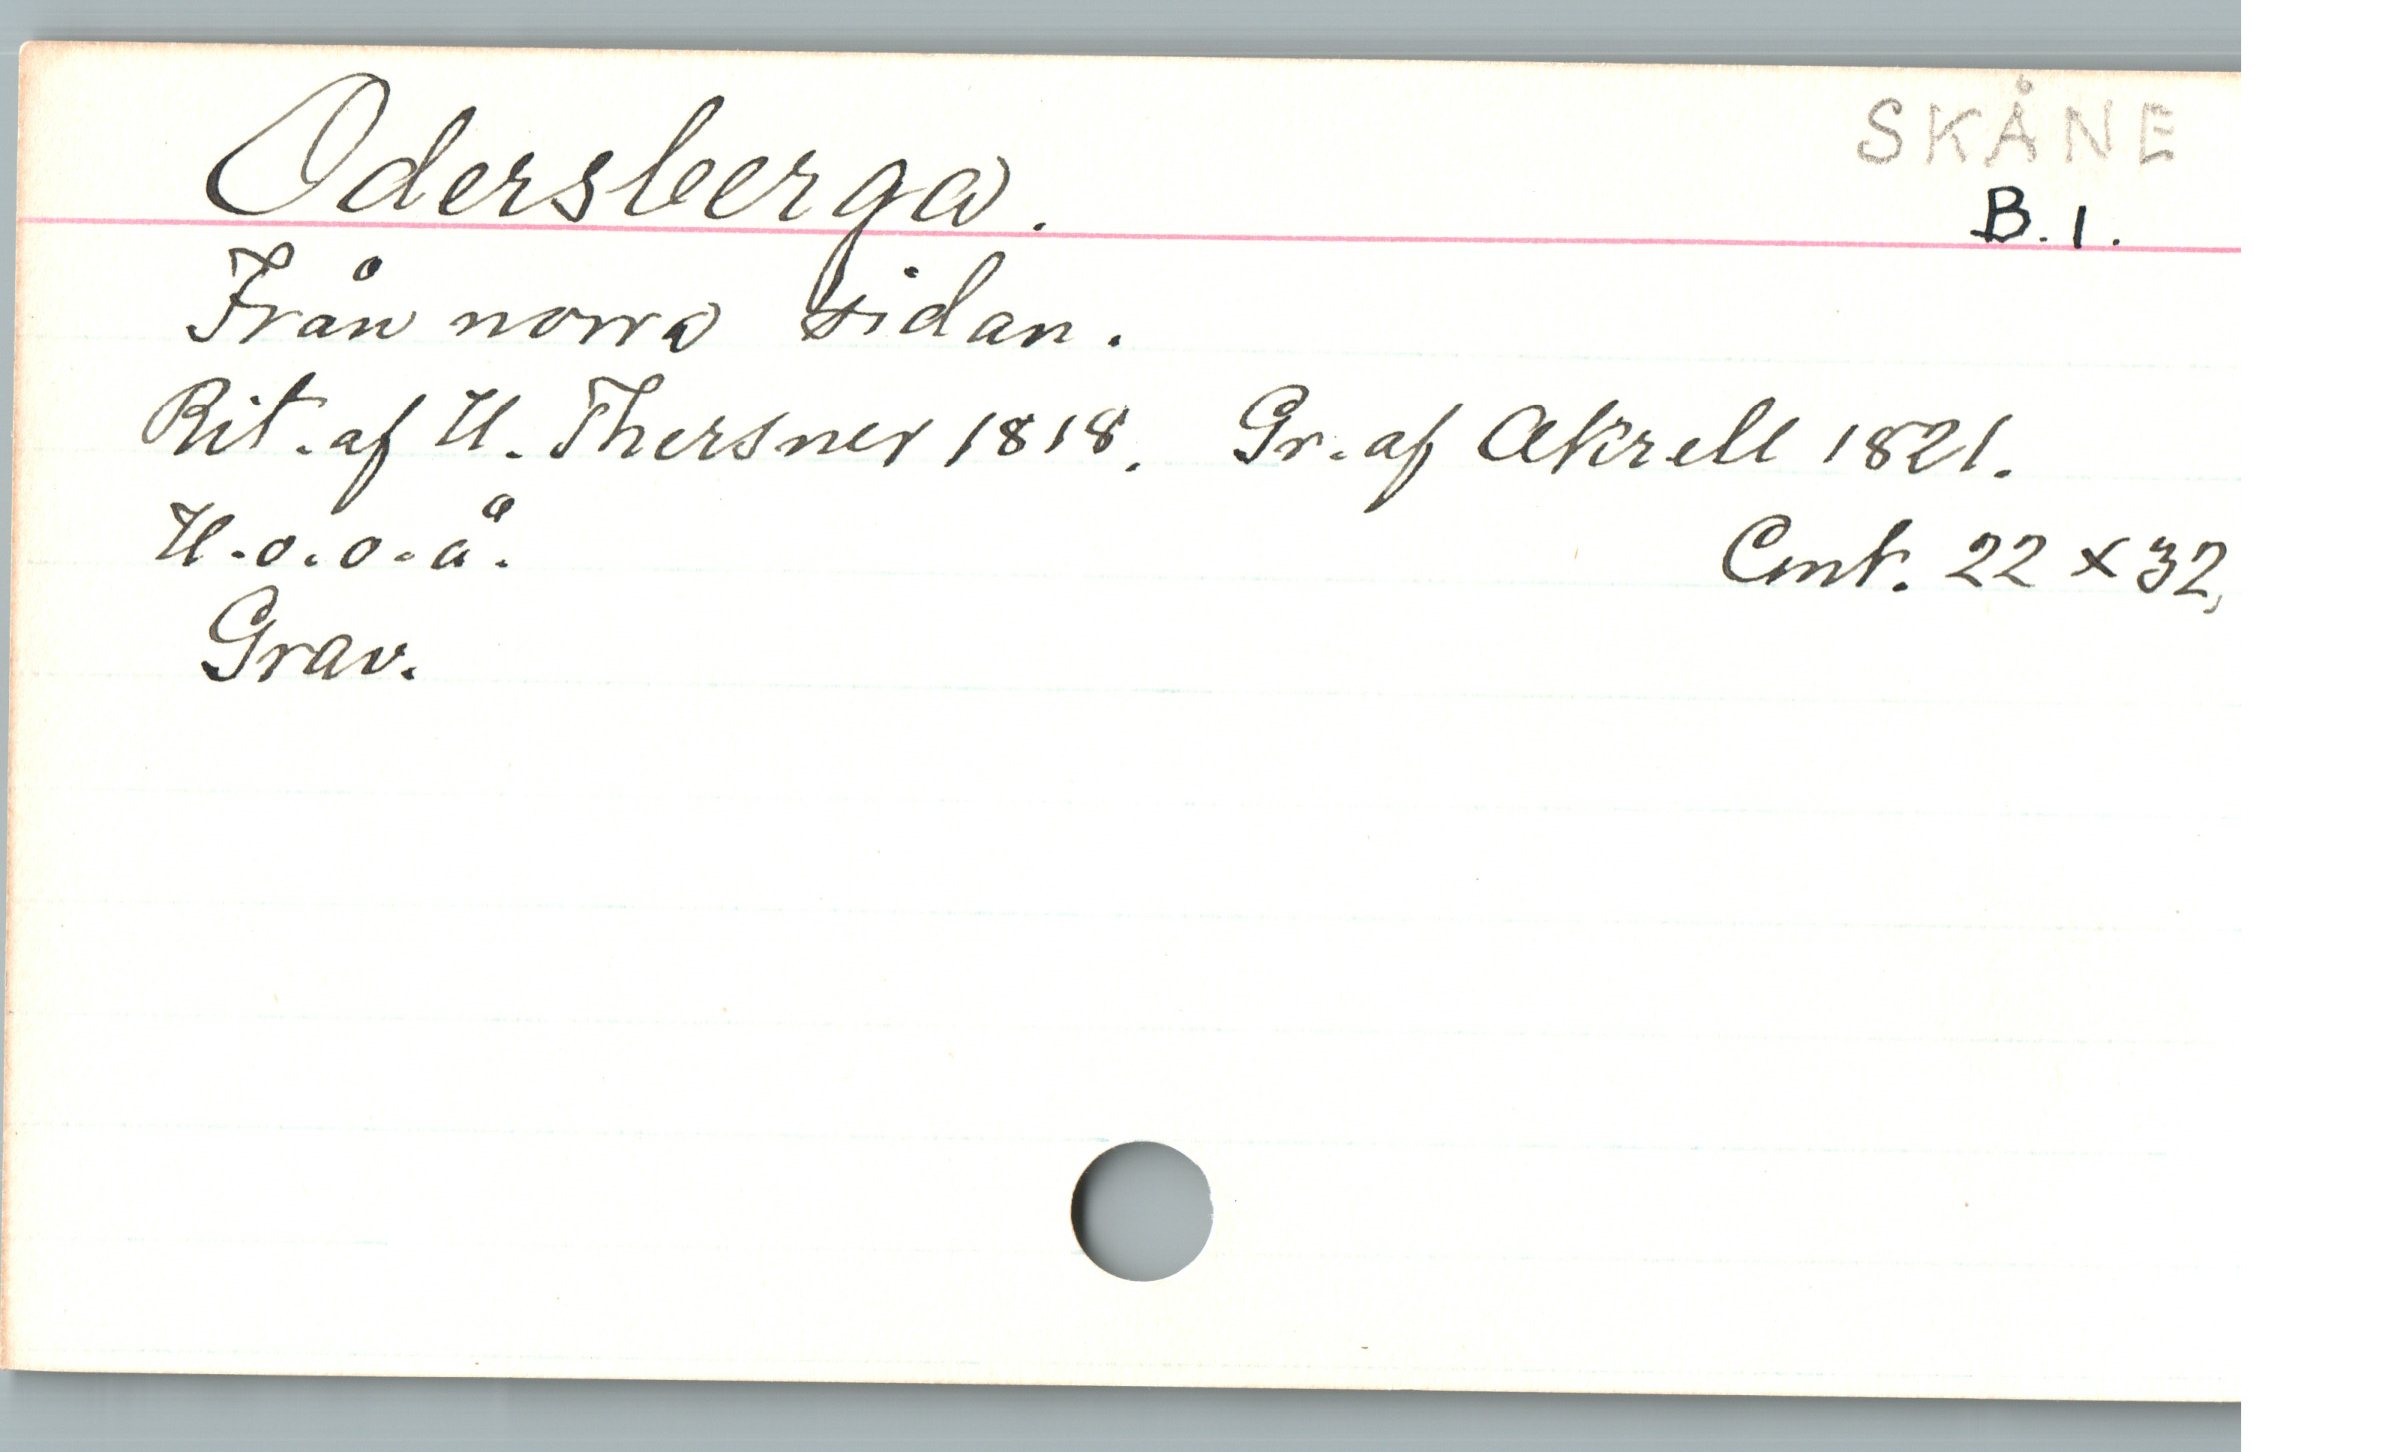 SKÅNE
Odersberga.
B.1.
Från norra sidan.
Rit. af U. Thersner 1818. Gr. af Akrell 1821.
U.o.o.å.
Cent. 22 x 32,
Grav.